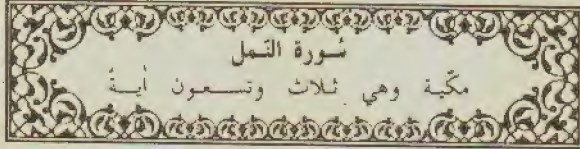 سُورة النمل
مكّية وهي ثلاث وتسعون أيةً